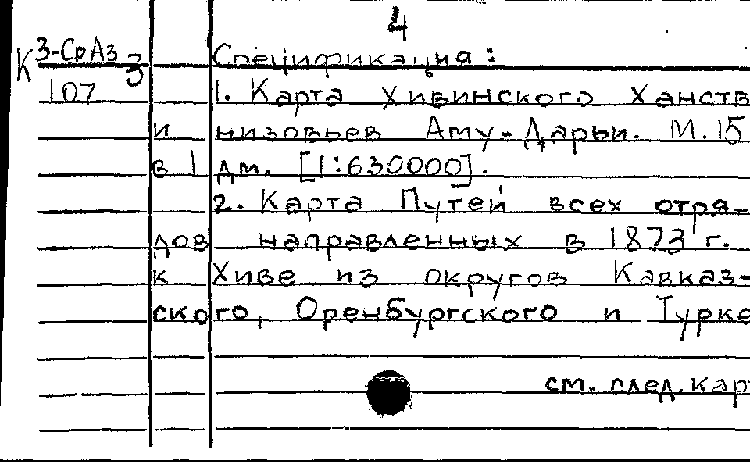 4
К 3-СрАз 3
107
Спецификация:
1. Карта Хивинского Ханств
и низовьев Аму-Дарьи. М.15
в 1 дм. [1:630000].
2. Карта Путей всех отря-
дов направленных в 1873 г.
к Хиве из округов Кавказ-
ского, Оренбургского и Турке
см. след. кар